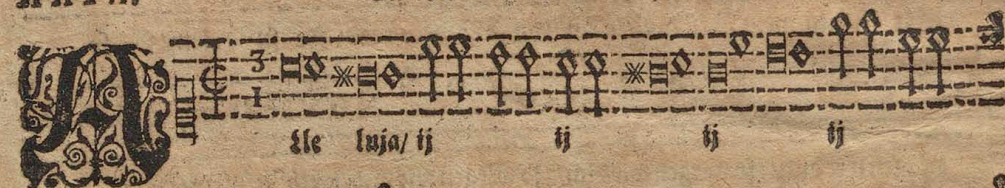 3
1
Alle luja/ ij ij ij ij